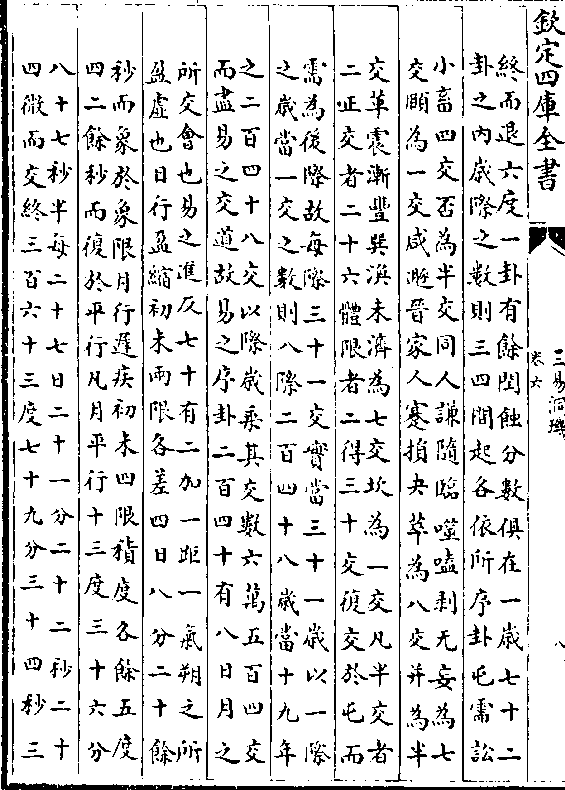 欽定四庫全書
三易洞璣
卷六
八
終而退六度一卦有餘閏蝕分數俱在一歲七十二
卦之内歲際之數則三四間起各依所序卦屯需訟
小畜四交否為半交同人謙隨臨噬嗑剥无妄為七
交頤為一交咸遯晉家人蹇損夬萃為八交并為半
交革震漸豐巽渙未濟為七交坎為一交凡半交者
二正交者二十六體限者二得三十交復交於屯而
需為後際故每際三十一交實當三十一歲以一際
之歲當一交之數則八際二百四十八歲當十九年
之二百四十八交以際歲乘其交數六萬五百四交
而盡易之交道故易之序卦二百四十有八日月之
所交會也易之進反七十有二加一距一氣朔之所
盈虛也日行盈縮初末兩限各差四日八分二十餘
秒而象於象限月行遲疾初末四限積度各餘五度
四二餘秒而復於平行凡月平行十三度三十六分
八十七秒半每二十七日二十一分二十二秒二十
四微而交終三百六十三度七十九分三十四秒三